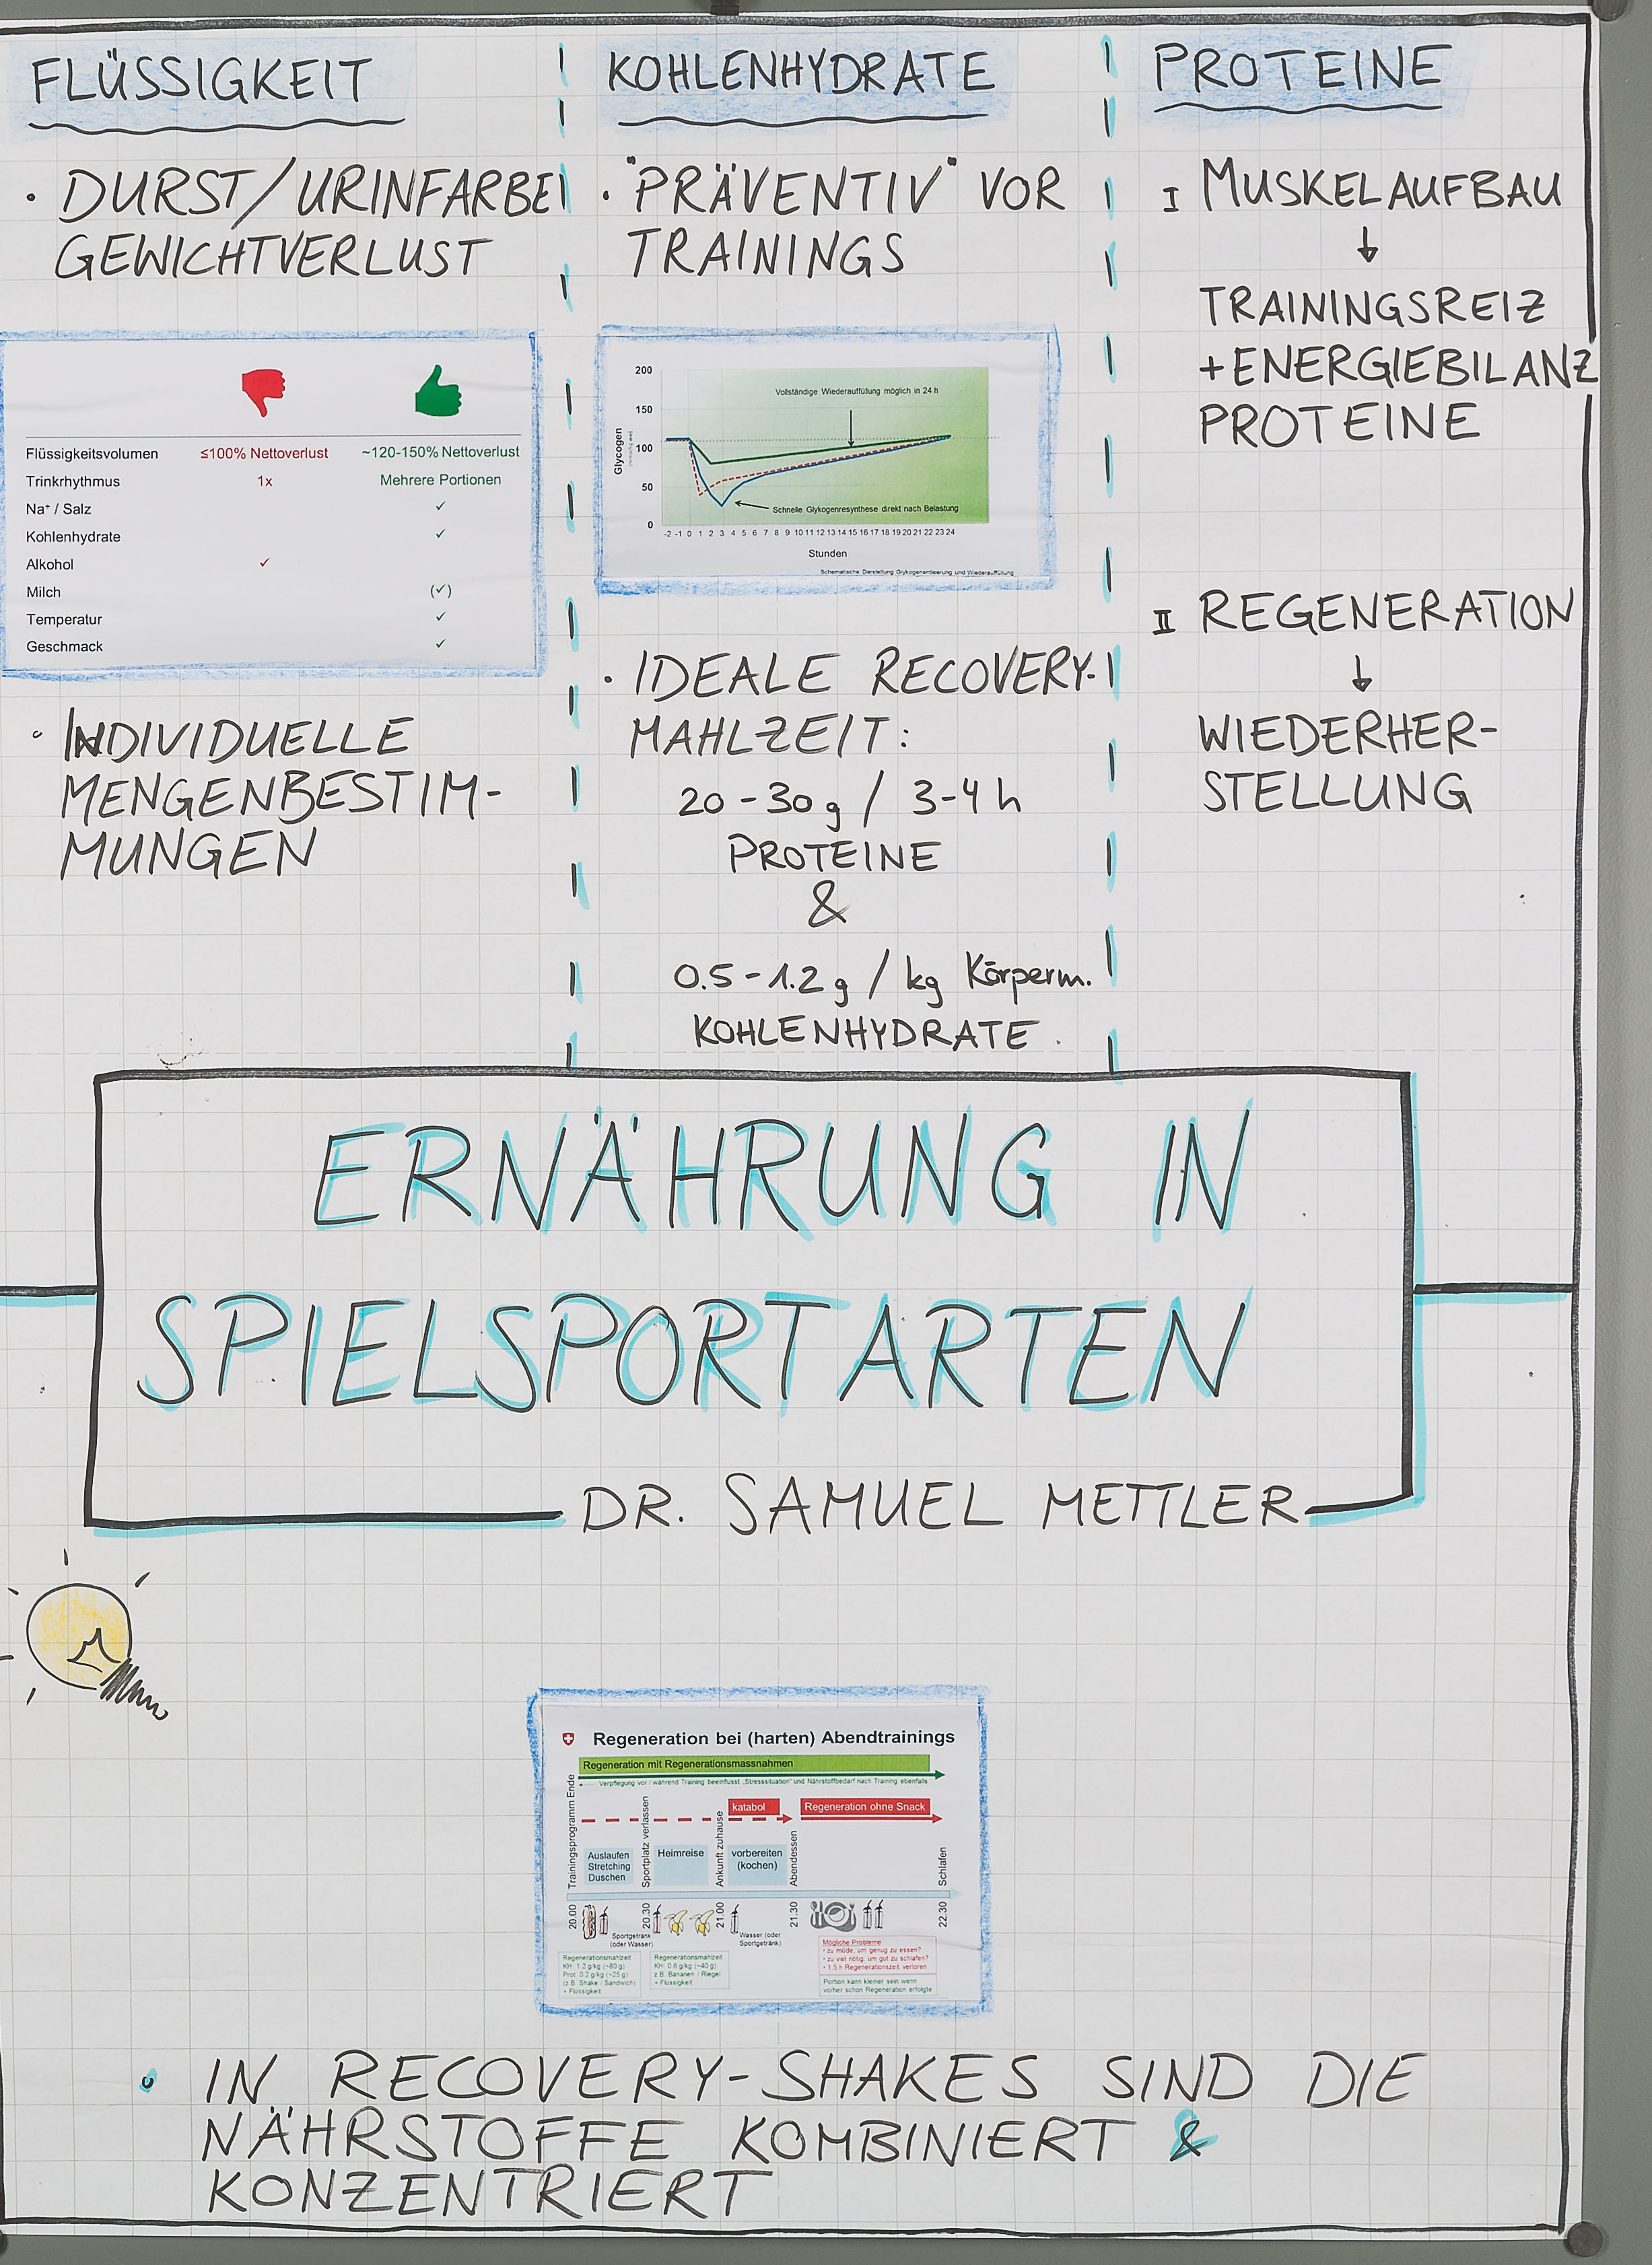 FLÜSSIGKEIT
· DURST/URINFARBE
GEWICHTVERLUST
Flüssigkeitsvolumen ≤100% Nettoverlust ~120-150% Nettoverlust
Trinkrhythmus 1x Mehrere Portionen
Na⁺ / Salz ✓
Kohlenhydrate ✓
Alkohol ✓
Milch (✓)
Temperatur ✓
Geschmack ✓
· INDIVIDUELLE
MENGENBESTIM-
MUNGEN
KOHLENHYDRATE
· "PRÄVENTIV" VOR
TRAININGS
200
150
100
50
0
Glycogen
Vollständige Wiederauffüllung möglich in 24 h
Schnelle Glykogenresynthese direkt nach Belastung
-2 -1 0 1 2 3 4 5 6 7 8 9 10 11 12 13 14 15 16 17 18 19 20 21 22 23 24
Stunden
Schematische Darstellung Glykogenentleerung und Wiederauffüllung
· IDEALE RECOVERY-
MAHLZEIT:
20-30g / 3-4 h
PROTEINE
&
0.5-1.2g / kg Körperm.
KOHLENHYDRATE
PROTEINE
I MUSKELAUFBAU
↓
TRAININGSREIZ
+ENERGIEBILANZ
PROTEINE
II REGENERATION
↓
WIEDERHER-
STELLUNG
ERNÄHRUNG IN
SPIELSPORTARTEN
DR. SAMUEL METTLER
Regeneration bei (harten) Abendtrainings
Regeneration mit Regenerationsmassnahmen
Verpflegung vor / während Training beeinflusst „Stresssituation" und Nährstoffbedarf nach Training ebenfalls
katabol
Regeneration ohne Snack
Trainingsprogramm Ende
Sportplatz verlassen
Ankunft zuhause
Abendessen
Schlafen
Auslaufen
Stretching
Duschen
Heimreise
vorbereiten
(kochen)
20.00
20.30
21.00
21.30
22.30
Sportgetränk
(oder Wasser)
Wasser (oder
Sportgetränk)
Regenerationsmahlzeit
KH: 1.2 g/kg (~80 g)
Prot. 0.2 g/kg (~25 g)
(z.B. Shake / Sandwich)
+ Flüssigkeit
Regenerationsmahlzeit
KH: 0.6 g/kg (~40 g)
z.B. Bananen / Riegel
+ Flüssigkeit
Mögliche Probleme
- zu müde, um genug zu essen?
- zu viel nötig, um gut zu schlafen?
- 1.5 h Regenerationszeit verloren
Portion kann kleiner sein wenn
vorher schon Regeneration erfolgte
• IN RECOVERY-SHAKES SIND DIE
NÄHRSTOFFE KOMBINIERT &
KONZENTRIERT